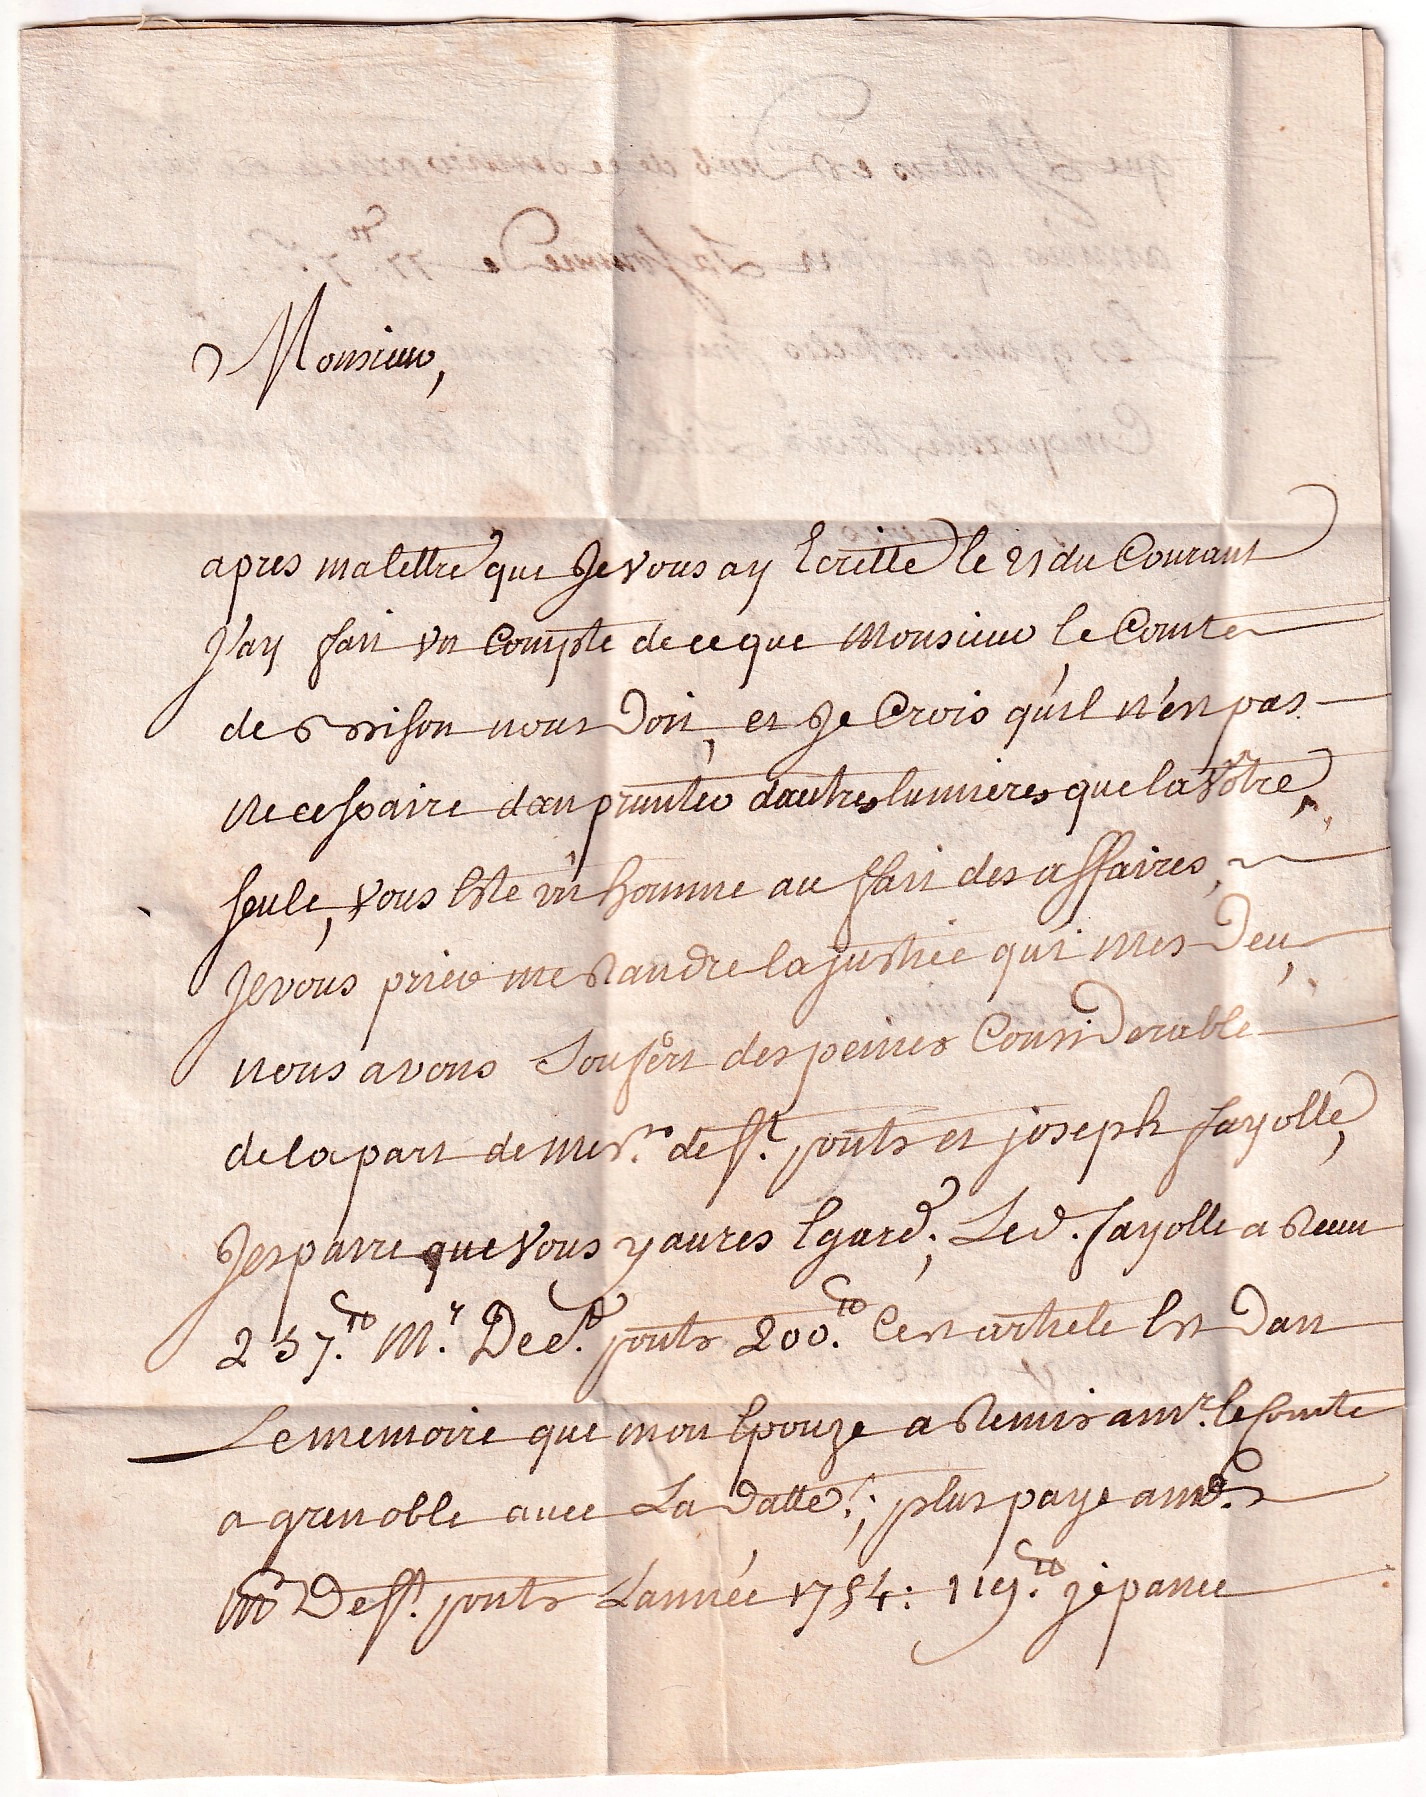 Monsieur,
apres ma lettre que Je vous ay Ecritte le 21 du Courant
J'ay fait vn Compte de ce que Monsieur le Comte
de nous Doit, et Je Crois qu'il n'est pas
necessaire d'anprunter d'autres lumieres que la Vôtre
seule, vous este vn homme au fait des affaires,
Je vous prier me Randre la justice qui mes Deu,
nous avons Soufert des peines Considerable
de la part de Mes.rs de st. ponts et joseph fayolle,
J'esparre que vous y aures Egard; Led. fayolle a Reeu
257.tt M.r De st. ponts 200.tt Cest article Est Dan
Le memoire que mon Epouze a Remis a mr. le Comte
a grenoble avec La Datte; plus paye a
De st. ponts L'année 1754: 119.tt je panee